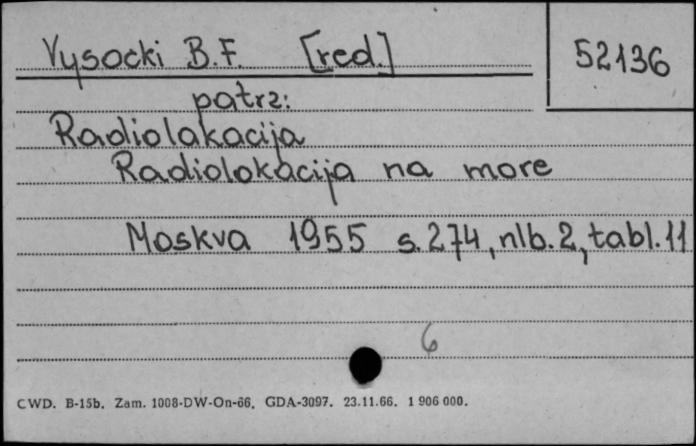 Vysocki B.F. [red.]
52136
patrz:
Radiolakacija
Radiolokacija na more
Moskva 1955 s.274, nlb.2, tabl.11
6
CWD. B-15b. Zam. 1008-DW-On-66. GDA-3097. 23.11.66. 1 906 000.